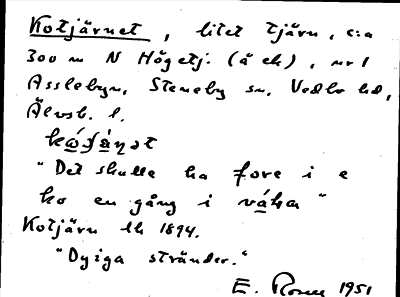 Kotjärnet, litet tjärn, c:a
300 m N Högetj. (å ek), nr 1
Assleby, Steneby sn, Vedbo hd,
Älvsb. l.
"Det skulle ha fore i e
ko en gång i våka"
Kotjärn Ek 1894.
"Dyiga stränder."
E. Rosen 1951